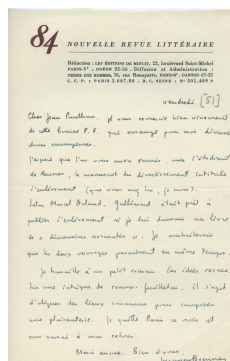 84 NOUVELLE REVUE LITTÉRAIRE
Rédaction : LES ÉDITIONS DE MINUIT, 22, boulevard Saint-Michel
PARIS-6e - ODÉON 22-56 - Diffusion et Administration :
76, rue Bonaparte, PARIS-6e - DANTON 67-32
C. C. P. : PARIS R. C. SEINE : No
vendredi [51]
Cher Jean Paulhan, je vous remercie bien vivement
de cette bourse qui arrange pour moi diverses
choses ennuyeuses.
J'espère que l'on vous aura remis, avec l'étude
de le manuscrit du divertissement intitulé
l'enlèvement (que vous avez lu, je crois).
Selon Marcel Arland, Gallimard était prêt à
publier l'enlèvement si je lui donnais un livre
de « dimensions normales ». Je souhaiterais
que les deux ouvrages paraissent en même temps.
Je travaille à un petit roman
sur une intrigue de roman-feuilleton, il s'agit
d'aligner des lieux communs pour composer
une plaisanterie. Je quitte Paris ce mois et
mon retour.
Merci encore. Bien à vous.